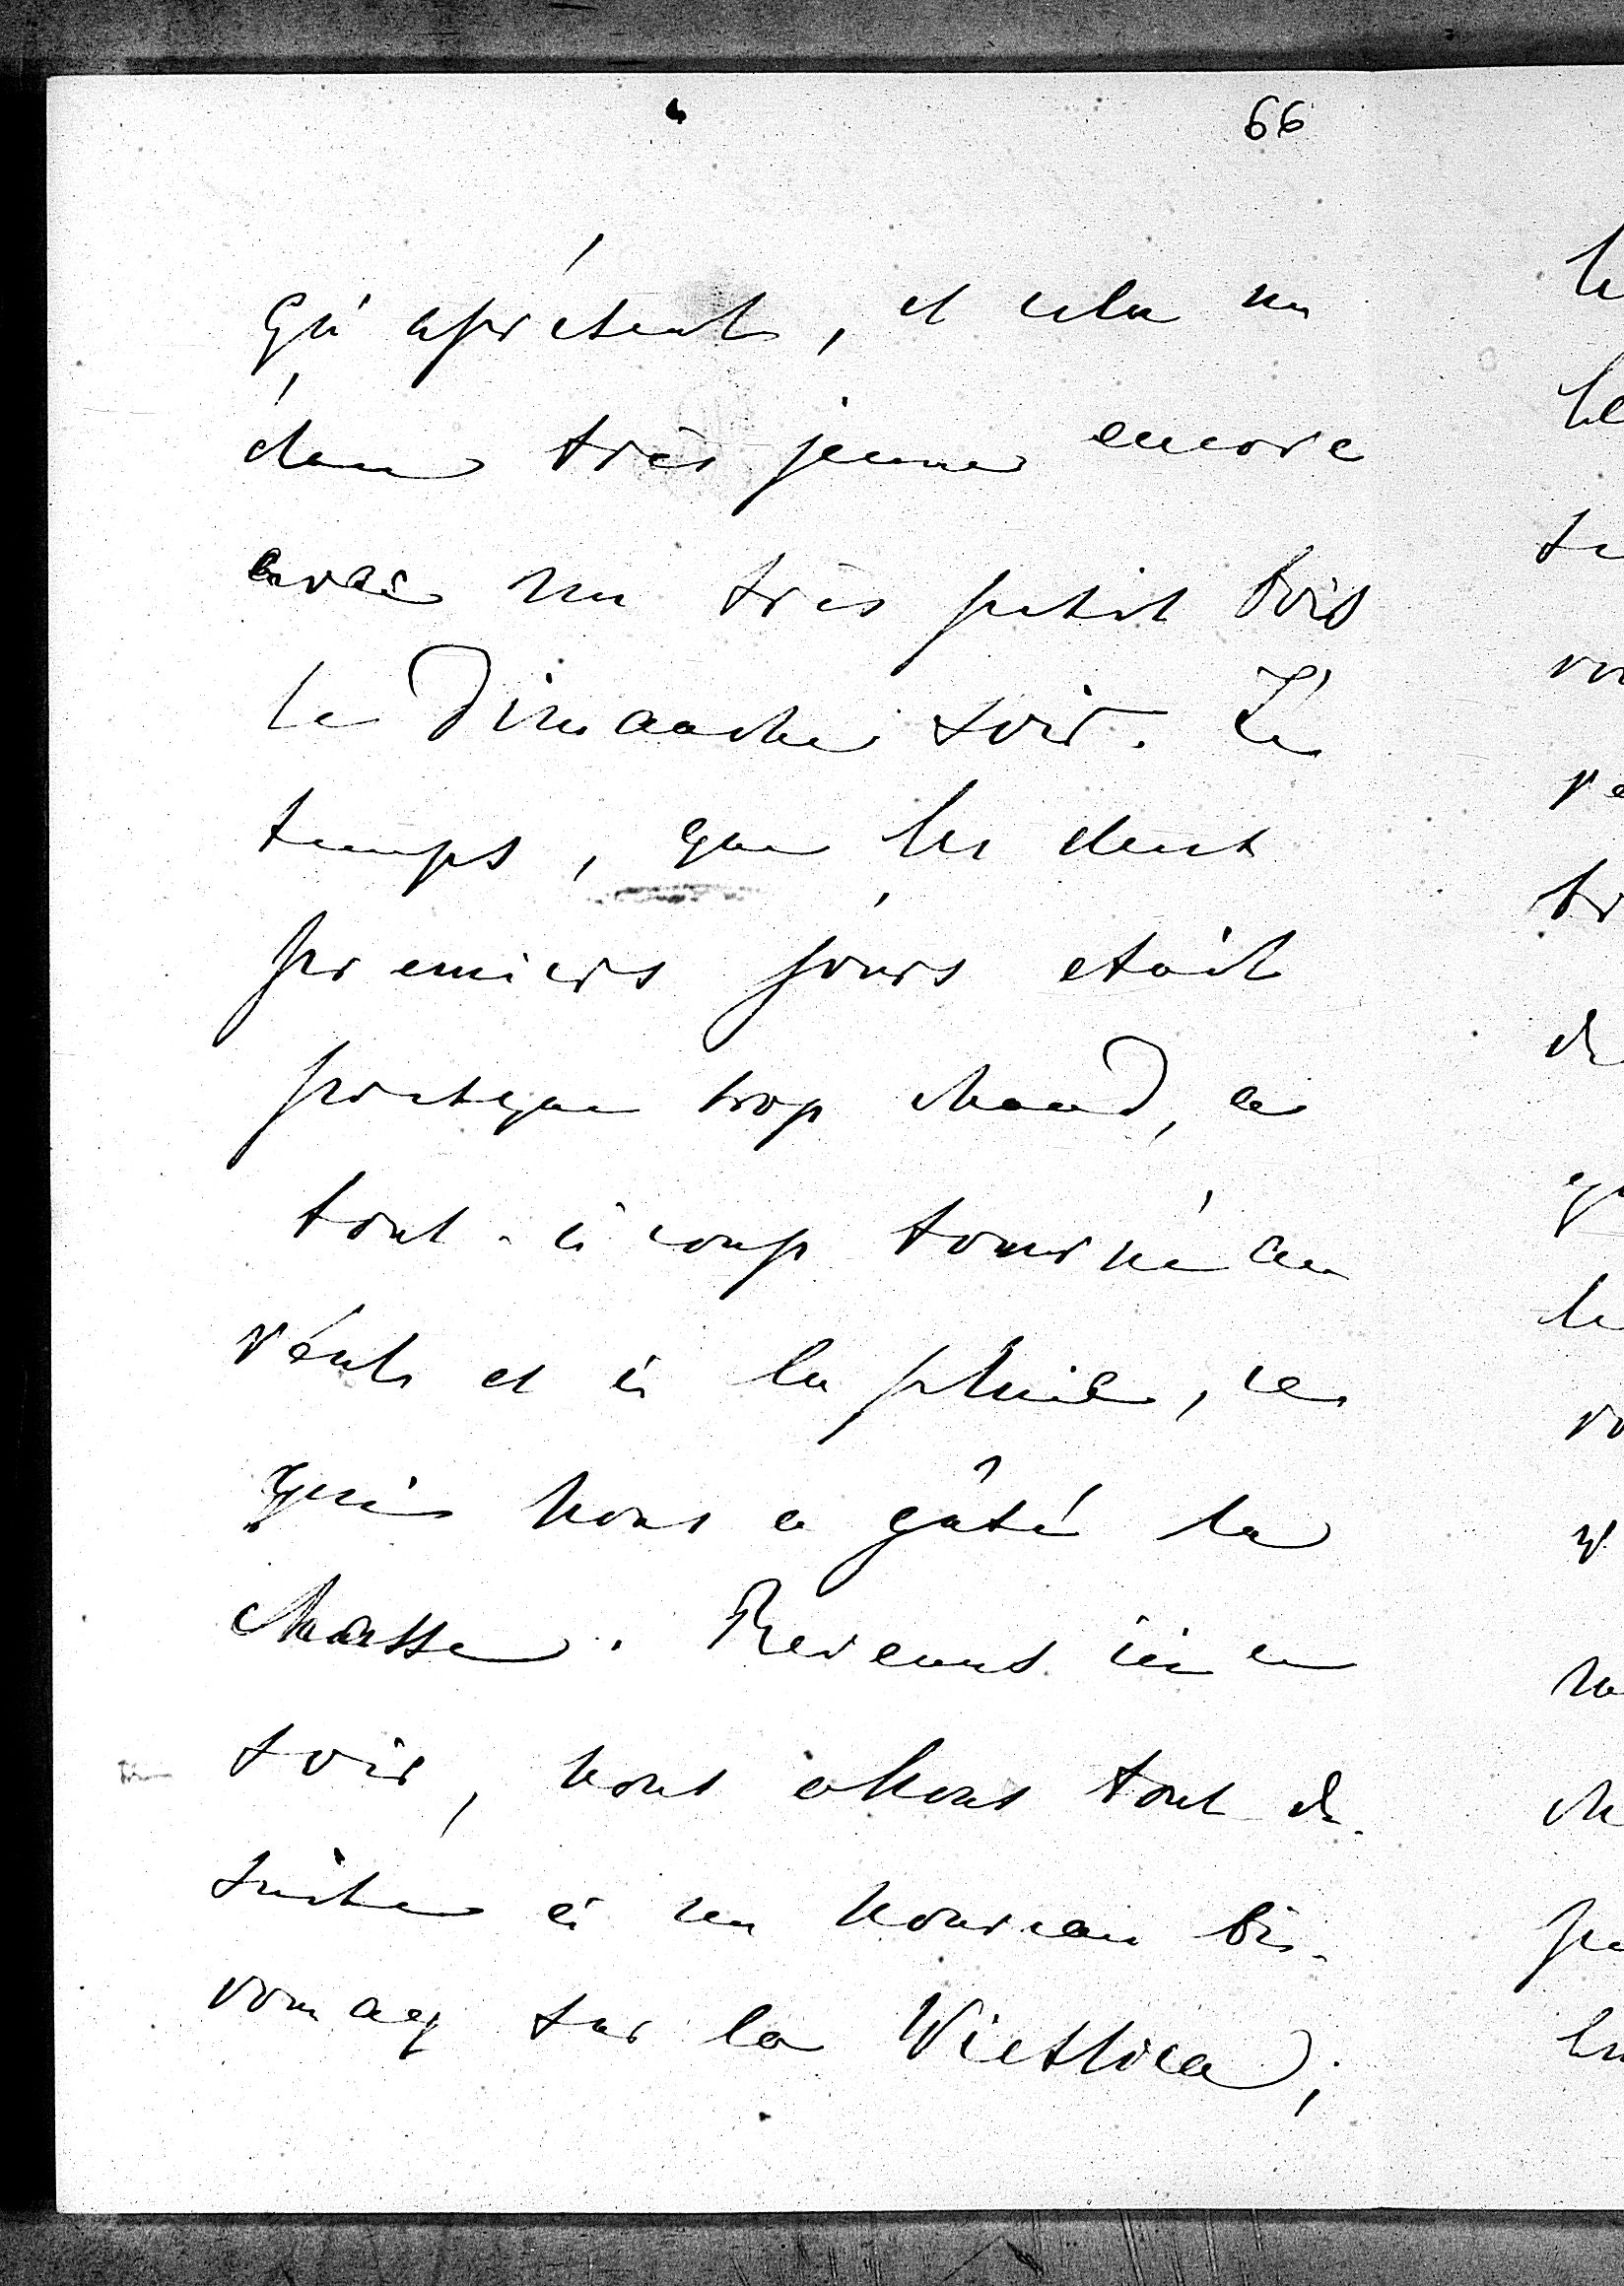 66
qu'apréseut, et cela un
élan très jeune encore
avec un très petit bois
le Dimanche soir. Le
temps, que les deux
premiers jours etait
presque trop chaud, a
tout-à coup tourné au
vent et à la pluie, ce
qui nous a gâté la
chasse. Revenus ici ce
soir, nous allons tout de
suite à un nouveau bi-
vouaq sur la